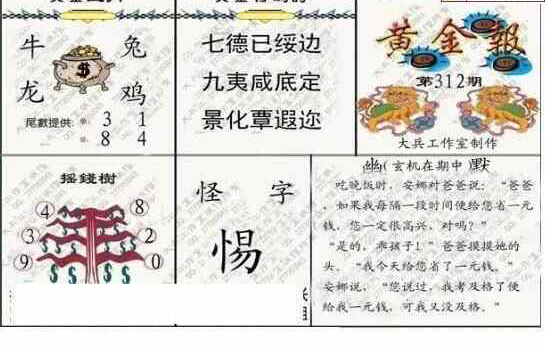 牛 兔
龙 鸡
尾數提供: 3 1
8 4
七德已绥边
九夷咸底定
景化覃遐迩
黄金報
第312期
大兵工作室制作
摇錢樹
4 8
3 2
9 0
怪 字
惕
幽(玄机在期中 默
吃晚饭时，安娜对爸爸说：“爸爸
，如果我每隔一段时间便给您省一元
钱，您一定很高兴，对吗？”
“是的，乖孩子！”爸爸摸摸她的
头。“我今天给您省了一元钱。”
安娜说，“您说过，我考及格了便
给我一元钱，可我又没及格。”